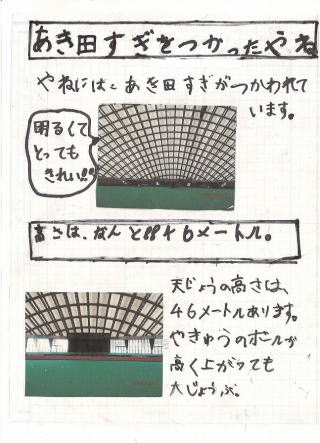 あき田すぎをつかったやね
やねには、あき田すぎがつかわれて
います。
明るくて
とっても
きれい!!
高さは、なんと!!46メートル。
天じょうの高さは、
46メートルあります。
やきゅうのボールが
高く上がっても
大じょうぶ。